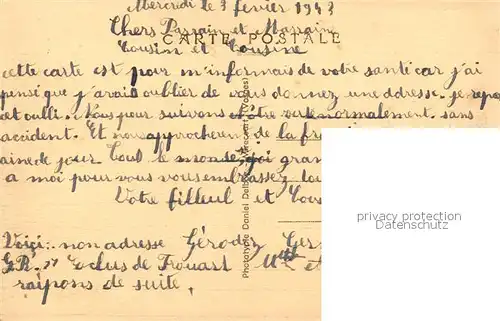 Mercredi le 3 fevier 1943
Chers Parrain et Marraine
CARTE POSTALE
Cousin et Cousine
cette carte est pour m'informais de votre santé car j'ai
pensé que j'avais oublier de vous donnez une addresse. je repar
cet oubli. Nous pour suivons notre route normalement sans
accident. Et nous approcherons de la fr
aine de jour. Tout le monde gran
a moi pour vous vous embrassez tou
Votre filleul et Cous
Voiçi: mon adresse Gérodez Ger
G.R. 77 Ecluse de Frouart Mtte et
raipons de suite.
Phototypie Daniel Delb Mirecourt (Vosges)
privacy protection
Datenschutz